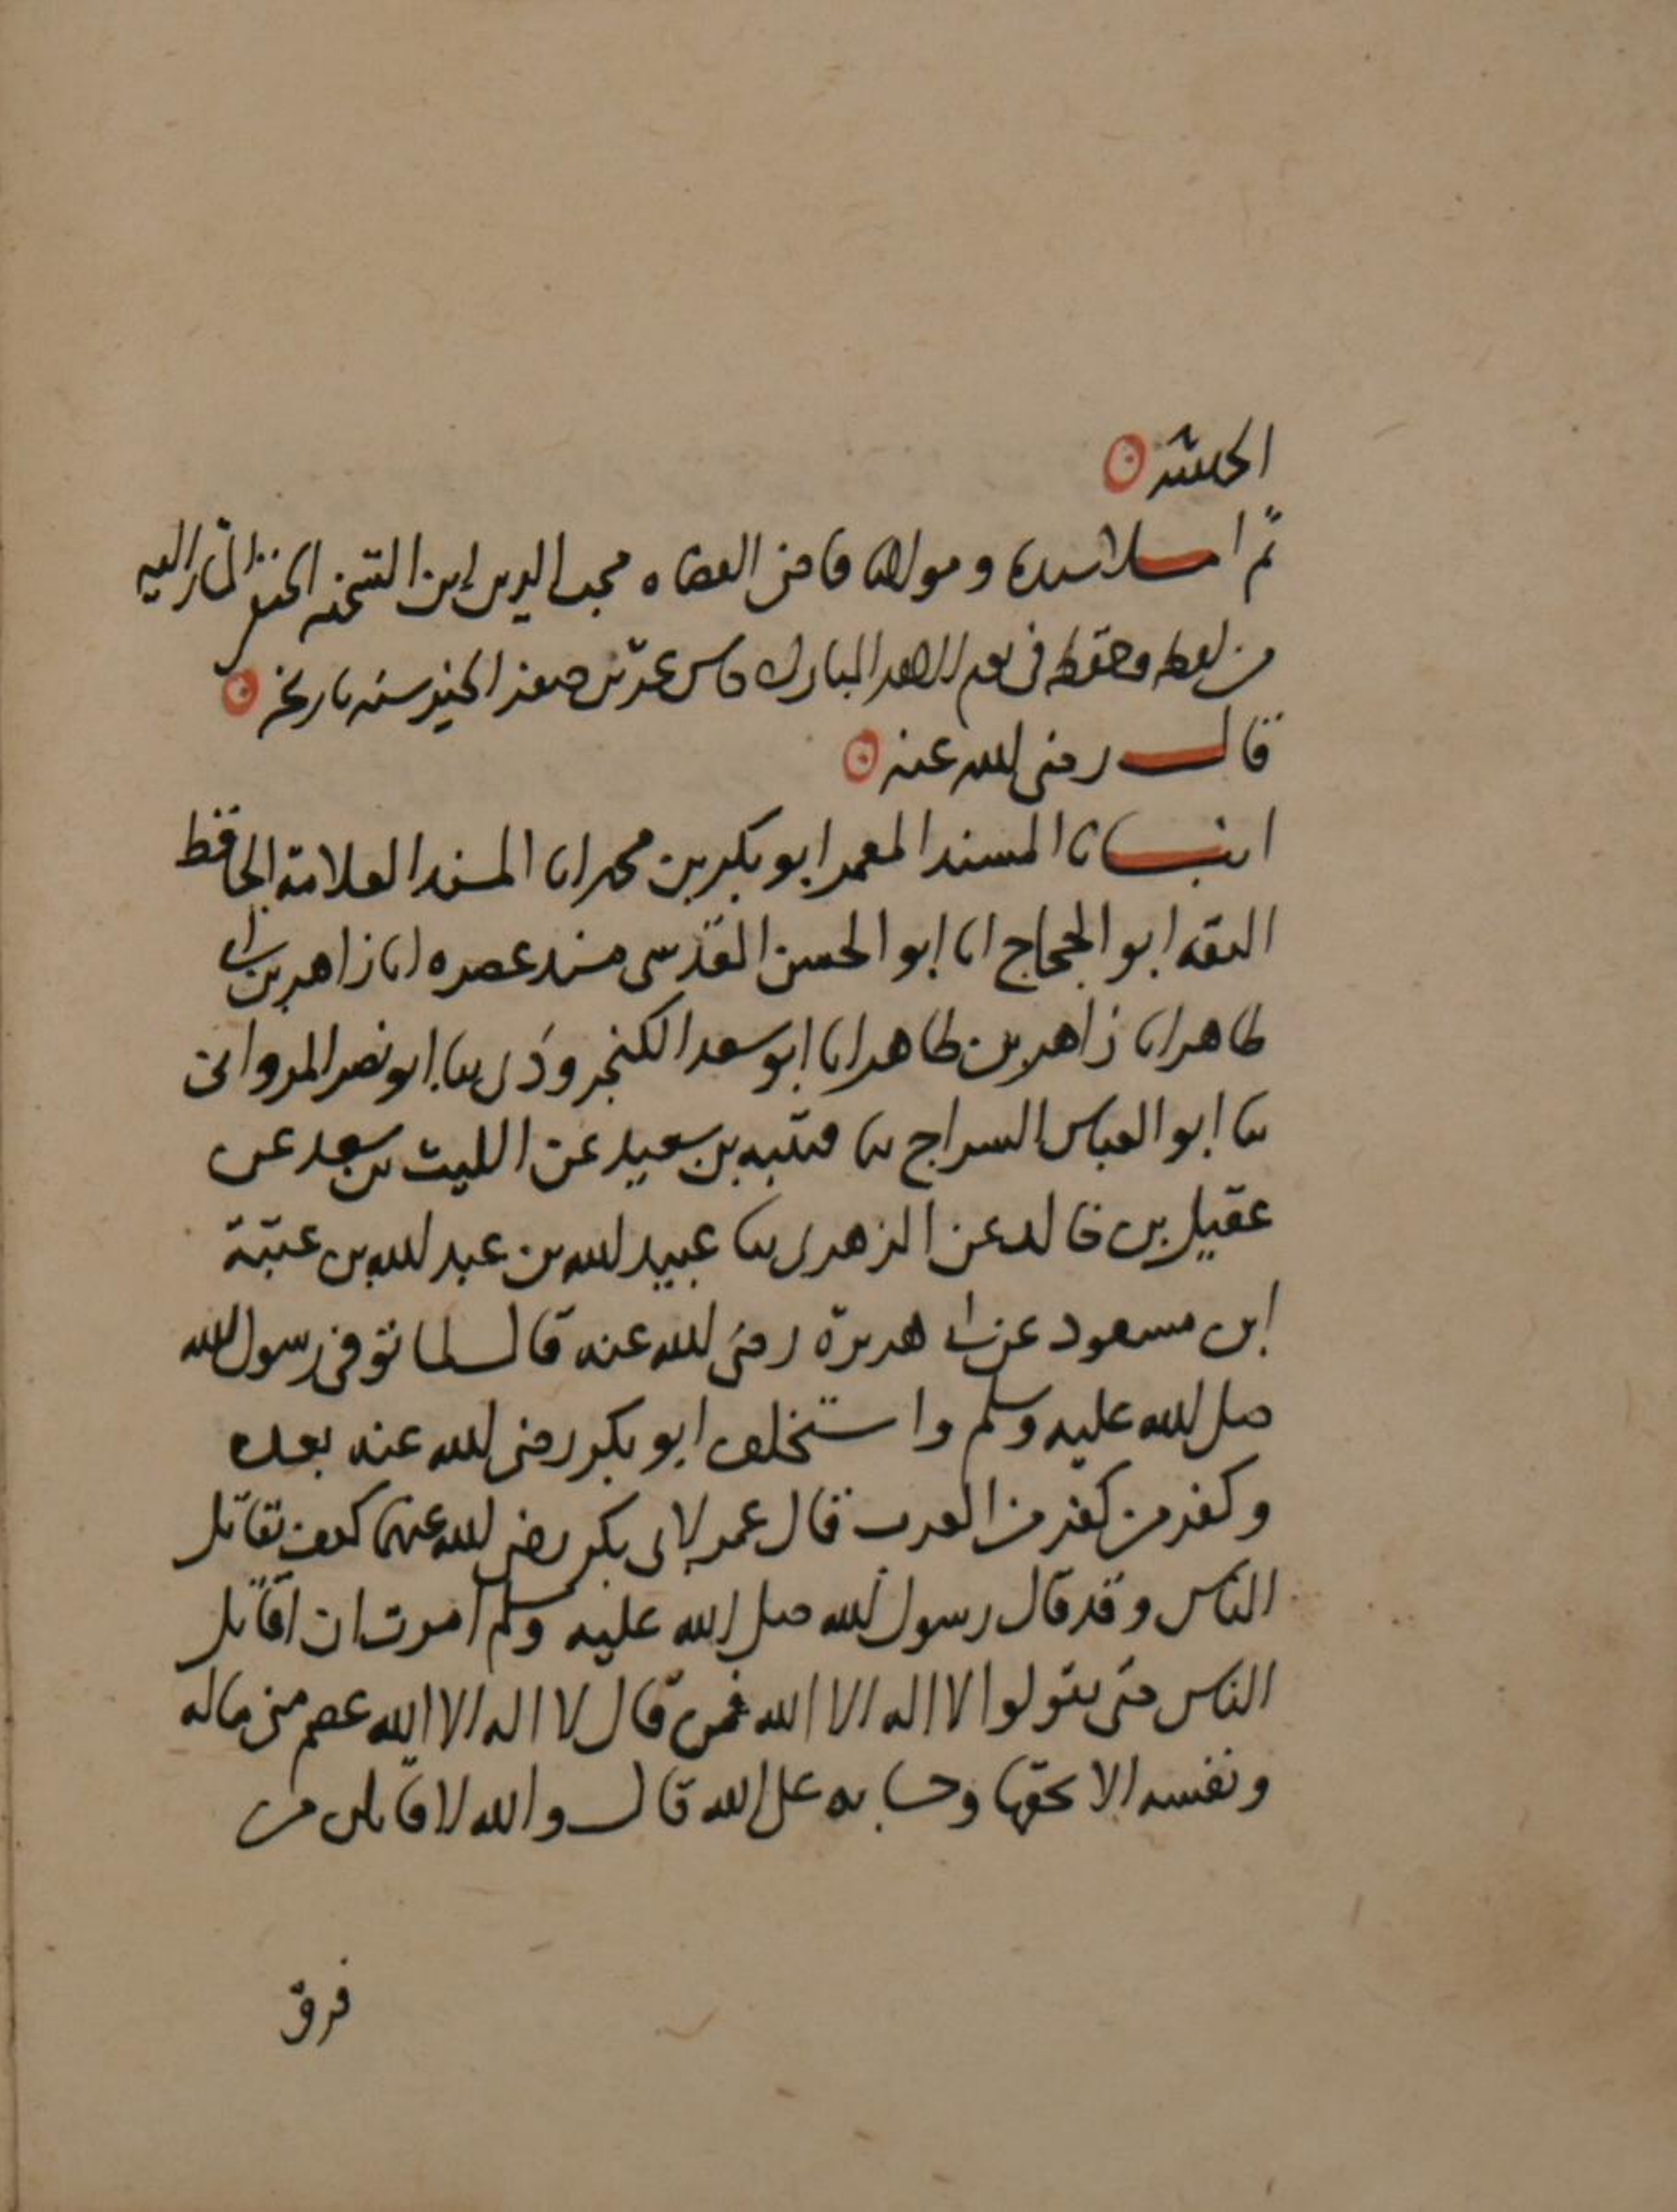 ثم املا سيدنا ومولانا قاضي القضاه محب الدين ابن الشحنه الحنفي المشار اليه
من لفظه وحفظه في يوم الاحد المبارك خامس عشرين صفر الخير سنه تاريخه
قال رضي الله عنه
انبانا المسند المعمر ابو بكر بن محمد انا المسند العلامة الحافظ
الثقه ابو الحجاج انا ابو الحسن المقدسي مسند عصره انا زاهر بن ابي
طاهر انا زاهر بن طاهر انا ابو سعد الكنجروذي ثنا ابو نصر المرواني
ثنا ابو العباس السراج ثنا قتيبه بن سعيد عن الليث بن سعد عن
عقيل بن خالد عن الزهري ثنا عبيد الله بن عبد الله بن عتبة
ابن مسعود عن ابي هريرة رضي الله عنه قال لما توفي رسول الله
صلى الله عليه وسلم واستخلف ابو بكر رضي الله عنه بعده
وكفر من كفر من العرب قال عمر لابي بكر رضي الله عنهما كيف تقاتل
الناس وقد قال رسول الله صلى الله عليه وسلم امرت ان اقاتل
الناس حتى يقولوا لا اله الا الله فمن قال لا اله الا الله عصم مني ماله
ونفسه الا بحقها وحسابه على الله قال والله لاقاتلن من
فرق